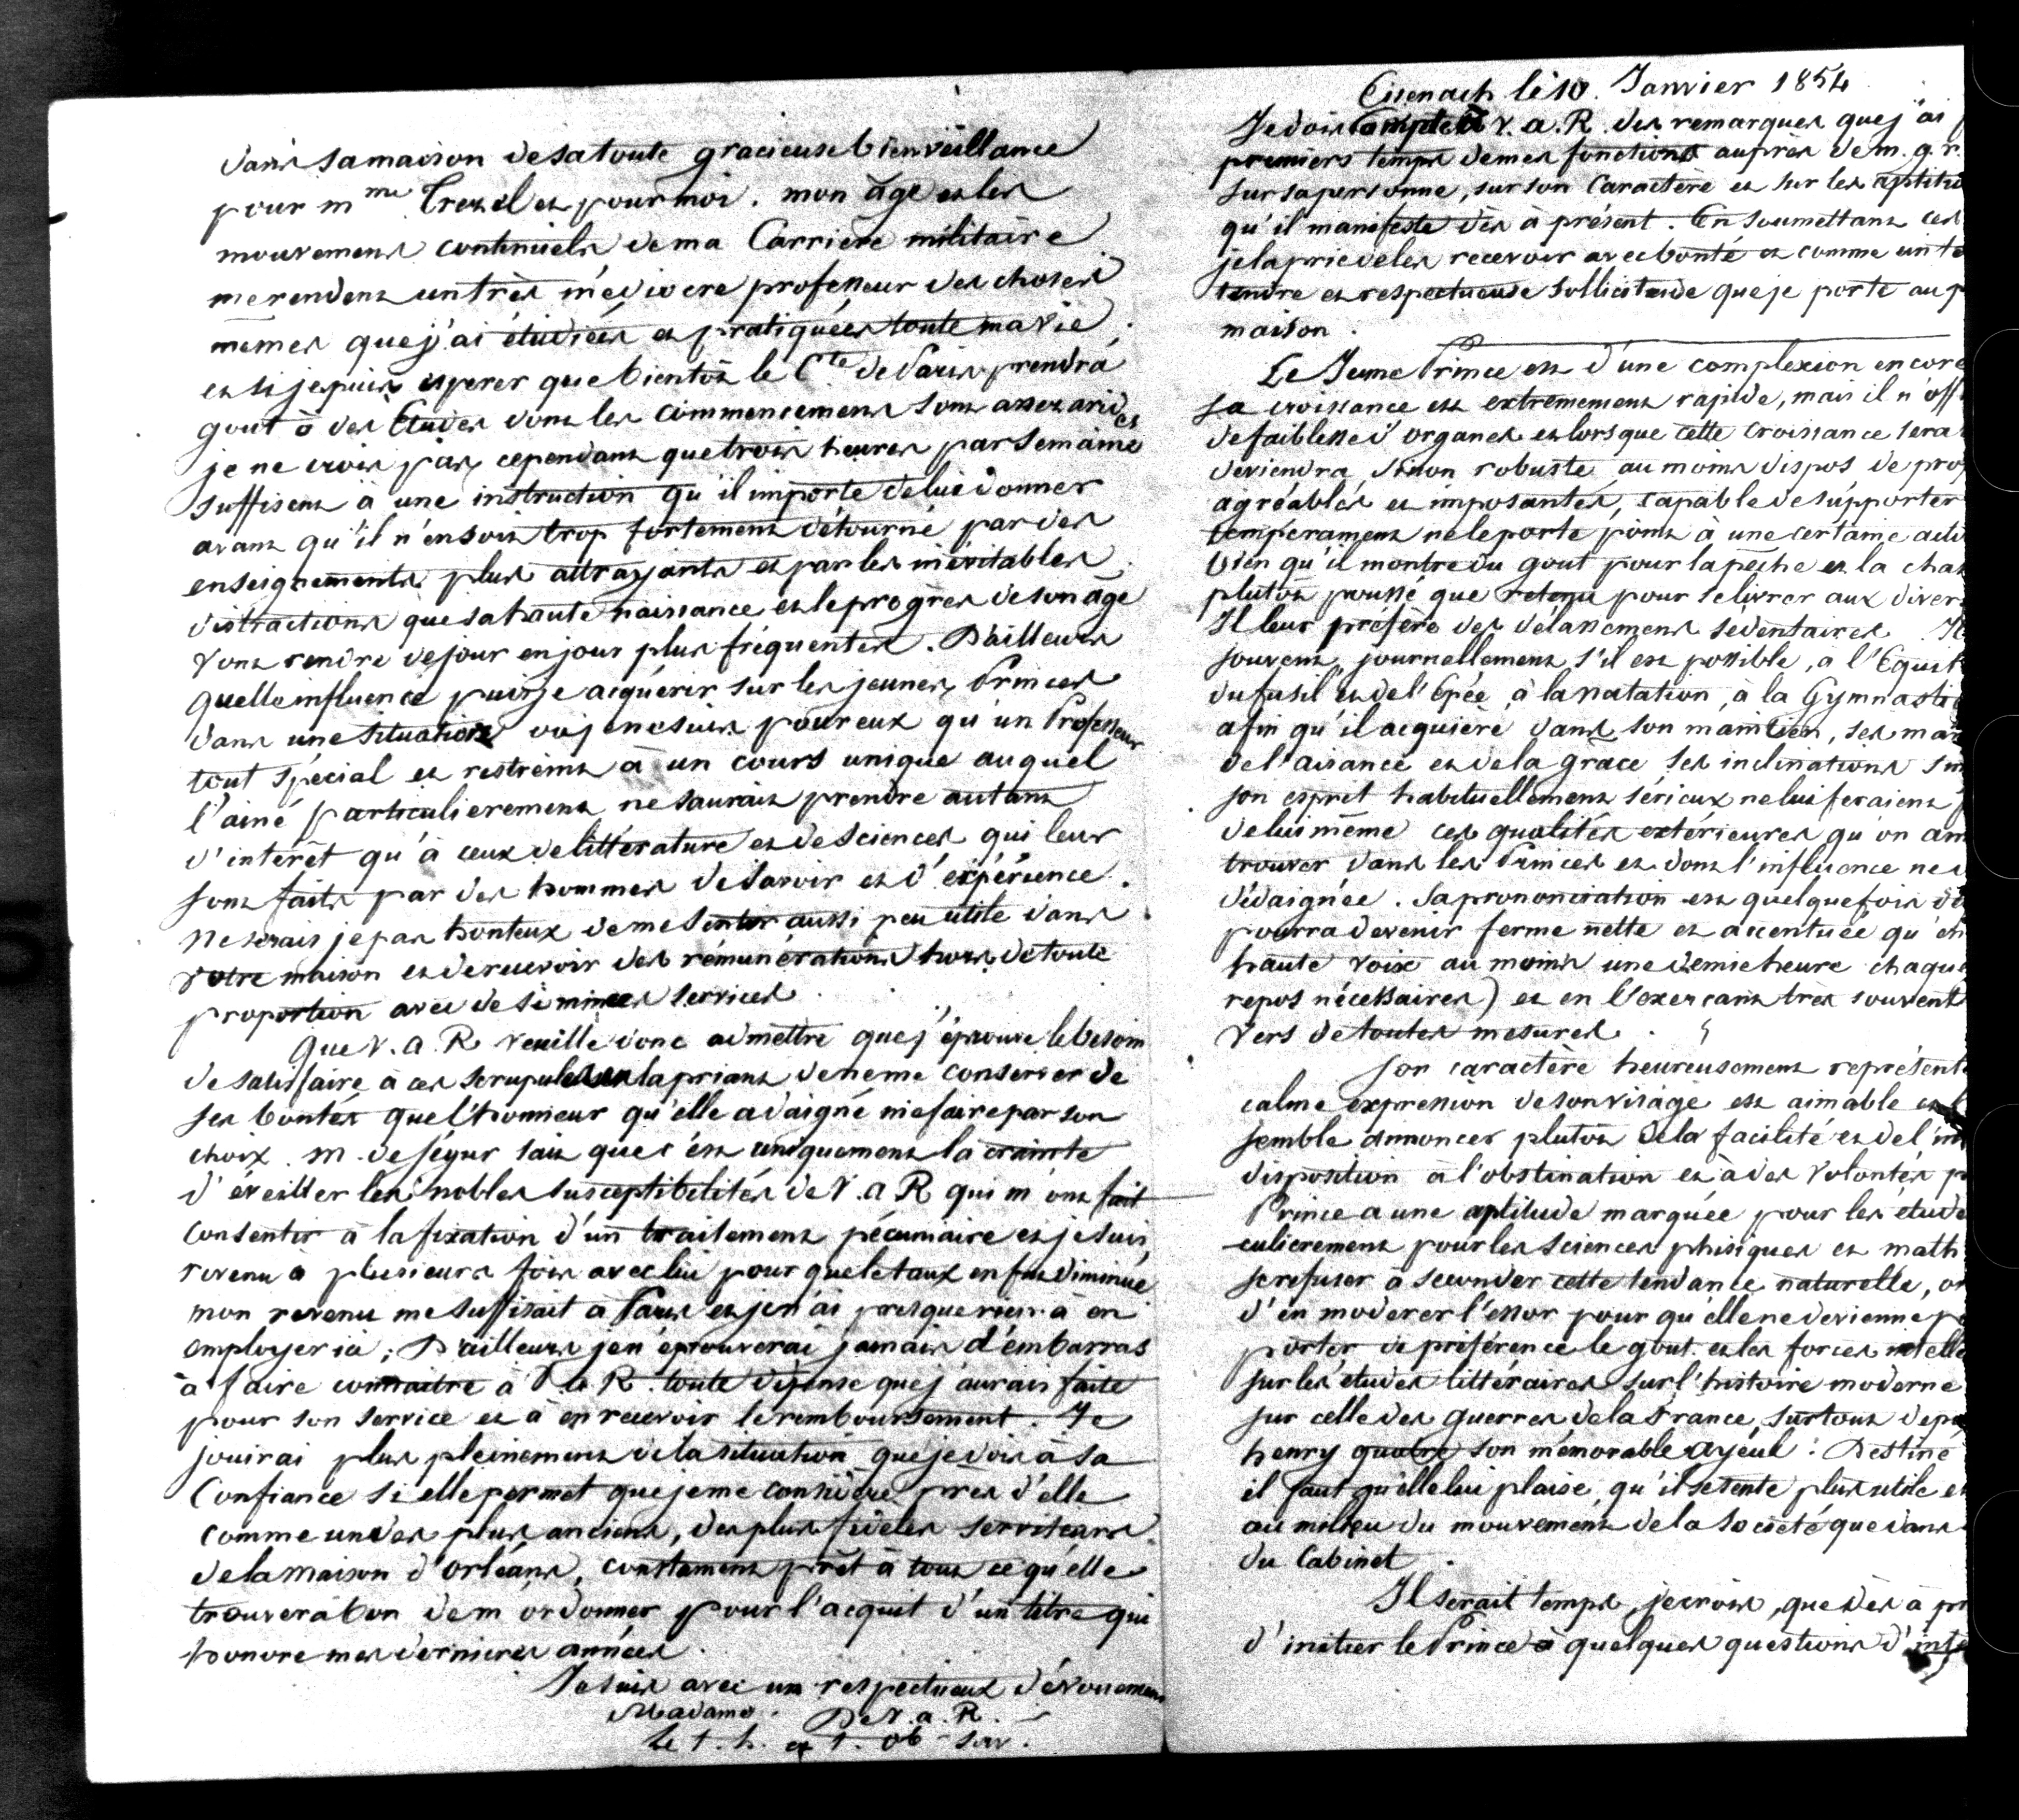 dans sa maison de sa toute gracieuse bienveillance
pour mme Trezel et pour moi. mon âge et les
mouvemens continuels de ma Carrière militaire
me rendent un très médiocre professeur des choses
mêmes que j'ai étudiées et pratiquées toute ma vie.
et si je puis espérer que bientôt le Cte de Paris prendra
gout à des Etudes dont les commencemens sont assez arides
je ne crois pas cependant que trois heures par semaine
suffisent à une instruction qu'il importe de lui donner
avant qu'il n'en soit trop fortement détourné par des
enseignements plus attrayants et par les inévitables
distractions que sa haute naissance et le progrès de son âge
vont rendre de jour en jour plus fréquentes. D'ailleurs
quelle influence puis je acquérir sur les jeunes Princes
dans une situation où je ne suis pour eux qu'un Professeur
tout spécial et restreint à un cours unique auquel
l'ainé particulierement ne saurait prendre autant
d'intérêt qu'à ceux de littérature et de Sciences qui leur
sont faits par des hommes de savoir et d'expérience.
Ne serais je pas honteux de me sentir aussi peu utile dans
votre maison et de recevoir des rémunérations hors de toute
proportion avec de si minces services.
Que V. a. R veuille donc admettre que j'éprouve le besoin
de satisfaire à ces scrupules en la priant de ne me conserver de
ses bontés que l'honneur qu'elle a daigné me faire par son
choix. M. de Ségur sait que c'est uniquement la crainte
d'éveiller les nobles susceptibilités de V. a R qui m'ont fait
consentir à la fixation d'un traitement pécuniaire et je suis
revenu à plusieurs fois avec lui pour que le taux en fut diminué
mon revenu me suffisait à Paris et je n'ai presque rien à en
employer ici; D'ailleurs je n'éprouverai jamais d'embarras
à faire connaitre à V. a R. toute dépense que j'aurais faite
pour son service et à en recevoir le remboursement. Je
jouirai plus pleinement de la situation que je dois à sa
Confiance si elle permet que je me considère près d'elle
comme un des plus anciens, des plus fidèles serviteurs
de la maison d'Orléans, constament prêt à tout ce qu'elle
trouvera bon de m'ordonner pour l'acquit d'un titre qui
honore mes dernieres années.
Je suis avec un respectueux dévouement
Madame. De V. a. R.
le t. h. et t. ob ser.
Eisenach le 10. Janvier 1854
Je dois compte à V. a. R. des remarques que j'ai
premiers temps de mes fonctions auprès de m. g. r.
sur sa personne, sur son Caractère et sur les aptitu
qu'il manifeste dès à présent. En soumettant ces
je la prie de les recevoir avec bonté et comme un te
tendre et respectueuse sollicitude que je porte au p
maison.
Le Jeune Prince est d'une complexion encore
sa croissance est extrêmement rapide, mais il n'off
de faiblesse d'organes et lorsque cette croissance sera
deviendra sinon robuste au moins dispos de prop
agréables et imposantes, capable de supporter
temperament ne le porte point à une certaine acti
bien qu'il montre du gout pour la pêche et la chas
plutôt poussé que retenu pour se livrer aux diver
Il leur préfère des délassemens sédentaires. Il
souvent, journellement s'il est possible, à l'Equit
du fusil et de l'Epée, à la natation, à la Gymnasti
afin qu'il acquière dans son maintien, ses ma
de l'aisance et de la grâce ses inclinations sim
son esprit habituellement sérieux ne lui feraient
de lui même ces qualités extérieures qu'on aim
trouver dans les Princes et dont l'influence ne d
dédaignée. Sa prononciation est quelquefois
pourra devenir ferme nette et accentuée qu'en
haute voix au moins une demie heure chaque
repos nécessaires) et en l'exercant très souvent
vers de toutes mesures.
Son caractère heureusement représent
calme expression de son visage est aimable et
semble annoncer plutôt de la facilité et de l'in
disposition à l'obstination et à des volontés p
Prince a une aptitude marquée pour les étude
culierement pour les Sciences phisiques et math
se refuser à seconder cette tendance naturelle, on
d'en moderer l'essor pour qu'elle ne devienne p
porter de préférence le gout et les forces
sur les études littéraires sur l'histoire moderne
sur celle des guerres de la France, surtout depu
henry quatre son mémorable ayeul: Destiné
il faut qu'elle lui plaise qu'il se sente plus utile et
au milieu du mouvement de la Société que dans
du Cabinet.
Il serait temps, je crois, que dès à pr
d'initier le Prince à quelques questions d'inte